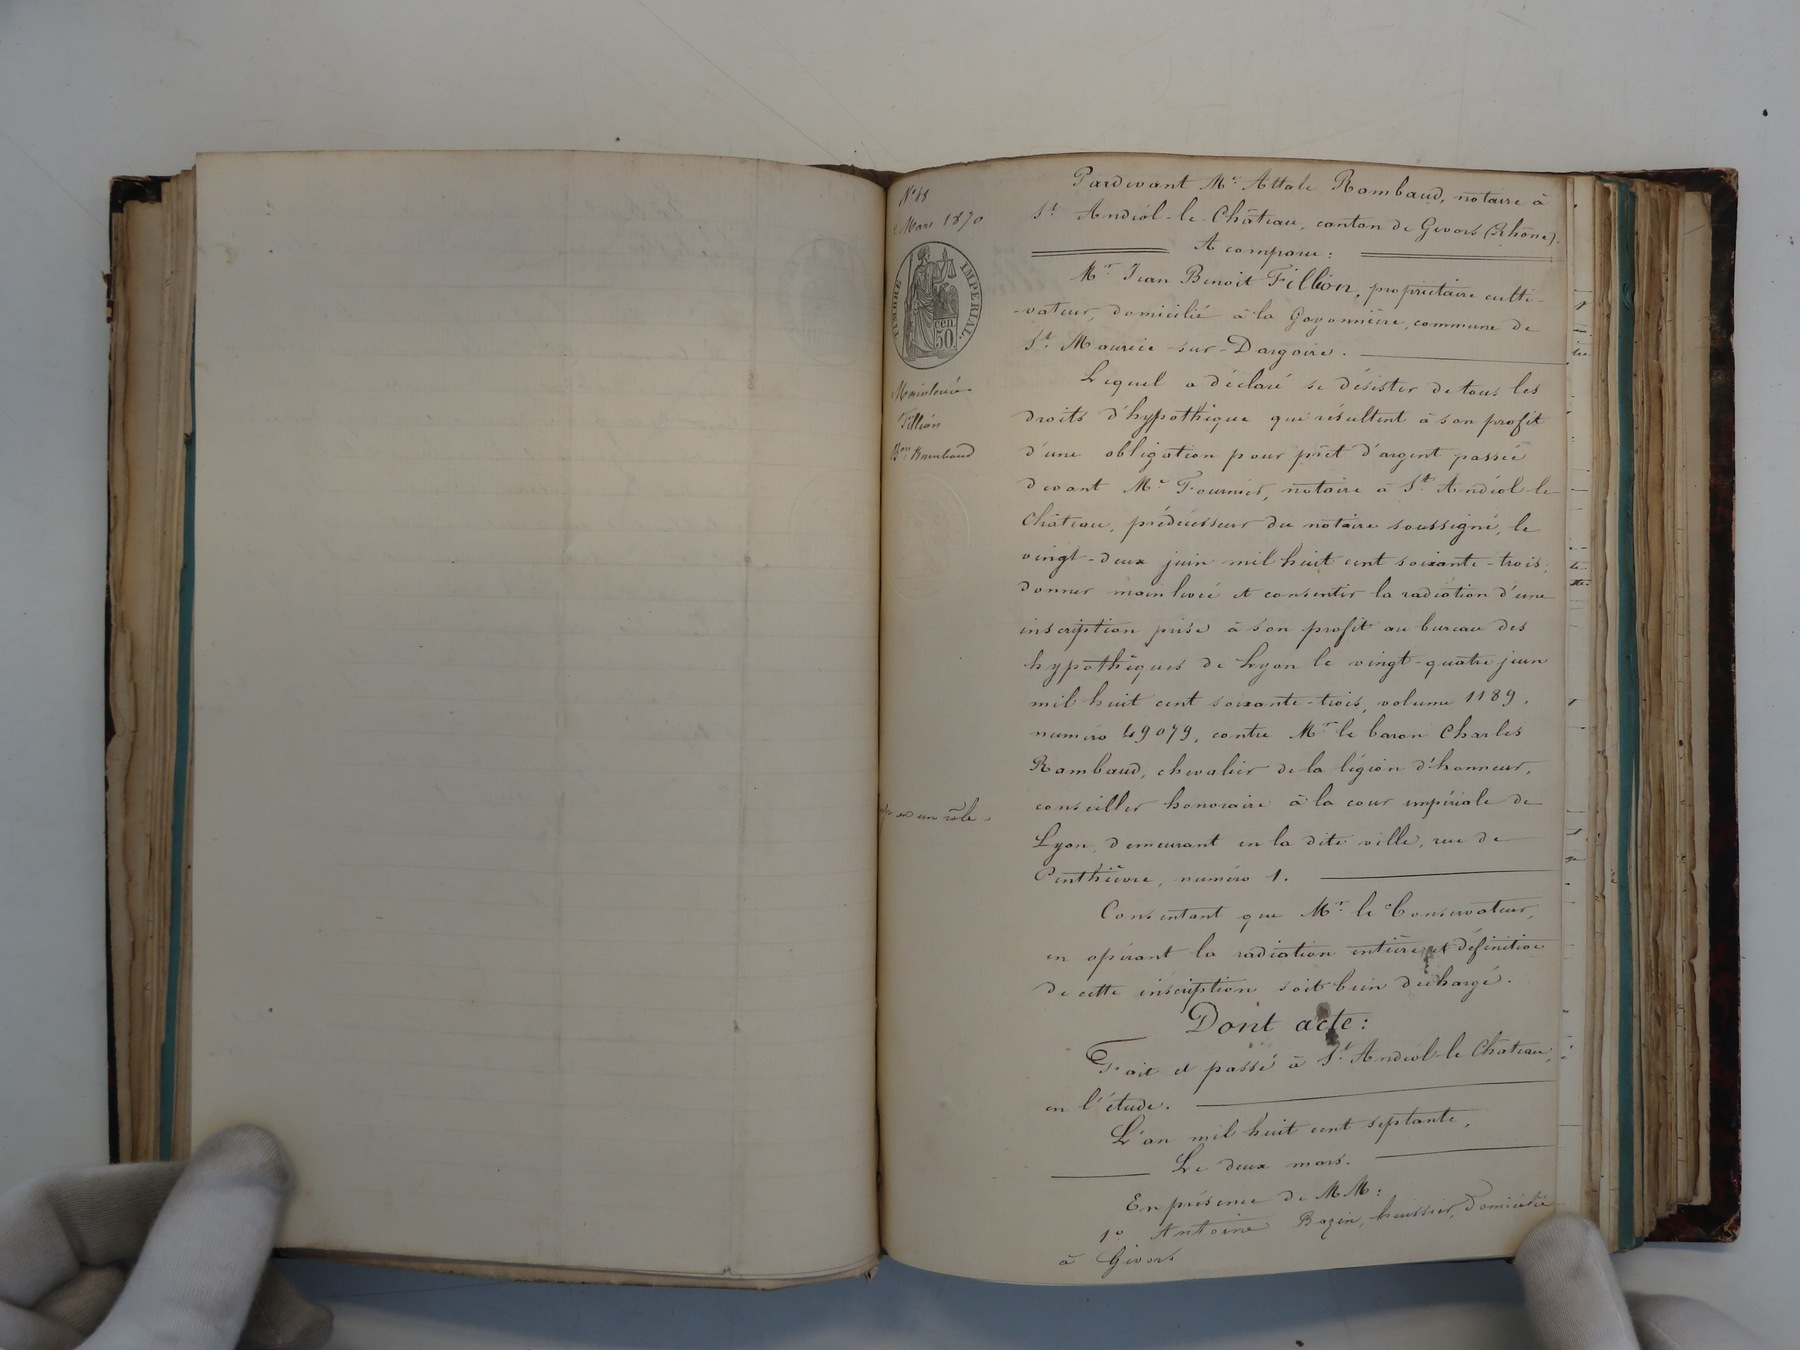 N° 48
2 Mars 1870
TIMBRE IMPERIAL.
50 cen
Mainlevée
Fillion
Bon Rambaud
un rôle
Pardevant Me Attale Rambaud, notaire à
St Andéol-le-Château, canton de Givors (Rhône).
A comparu :
Mr Jean Benoit Fillion, propriétaire culti-
-vateur, domicilié à la Goyonnière, commune de
St Maurice-sur-Dargoire.
Lequel a déclaré se désister de tous les
droits d'hypothèque qui résultent à son profit
d'une obligation pour prêt d'argent passée
devant Me Fournier, notaire à St Andéol le
Château, prédécesseur du notaire soussigné, le
vingt-deux juin mil huit cent soixante-trois;
donner mainlevée et consentir la radiation d'une
inscription prise à son profit au bureau des
hypothèques de Lyon le vingt-quatre juin
mil huit cent soixante-trois, volume 1189,
numéro 49079, contre Mr le baron Charles
Rambaud, chevalier de la légion d'honneur,
conseiller honoraire à la cour impériale de
Lyon, demeurant en la dite ville, rue de
Penthièvre, numéro 1.
Consentant que Mr le Conservateur,
en opérant la radiation entière et définitive
de cette inscription soit bien déchargé.
Dont acte :
Fait et passé à St Andéol-le Château,
en l'étude.
L'an mil huit cent septante,
Le deux mars.
En présence de MM :
1° Antoine Bazin, huissier, domicilié
à Givors